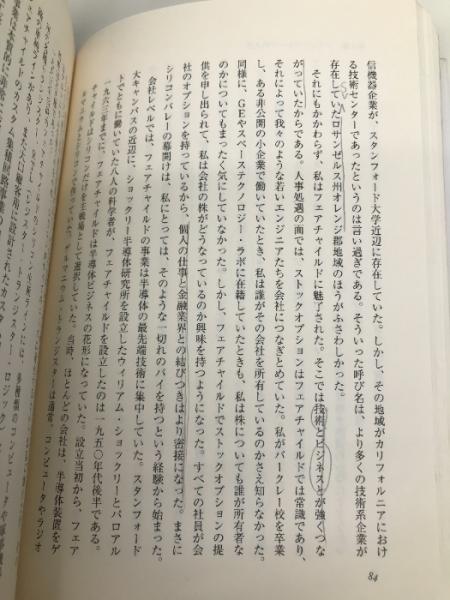 84
信機器企業が、スタンフォード大学近辺に存在していた。しかし、その地域がカリフォルニアにおけ
る技術センターであったというのは言い過ぎである。そういった呼び名は、より多くの技術系企業が
存在していたロサンゼルス州オレンジ郡地域のほうがふさわしかった。
それにもかかわらず、私はフェアチャイルドに魅了された。そこでは技術とビジネスとが強くつな
がっていたからである。人事処遇の面では、ストックオプションはフェアチャイルドでは常識であり、
それによって我々のような若いエンジニアたちを会社につなぎとめていた。私がバークレー校を卒業
し、ある非公開の小企業で働いていたとき、私は誰がその会社を所有しているのかさえ知らなかった。
同様に、GEやスペーステクノロジー・ラボに在籍していたときも、私は株についても誰が所有者な
のかについてもまったく気にしていなかった。しかし、フェアチャイルドでストックオプションの提
供を申し出られて、私は会社の株がどうなっているのか興味を持つようになった。すべての社員が会
社のオプションを持っているから、個人の仕事と金融業界との結びつきはより密接になった。まさに
シリコンバレーの幕開けは、私にとっては、そのような一切れのパイを持つという経験から始まった。
会社レベルでは、フェアチャイルドの事業は半導体の最先端技術に集中していた。スタンフォード
大キャンパスの近辺に、ショックリー半導体研究所を設立したウィリアム・ショックリーとパロアル
トでともに働いていた八人の科学者が、フェアチャイルドを設立したのは一九五〇年代後半である。
一九六三年までに、フェアチャイルドは半導体ビジネスの花形になっていた。設立当初から、フェア
チャイルドはシリコンだけを主戦場として選択していた。当時、ほとんどの会社は、半導体装置をゲ
ルマニウムとシリコンで作っていた。ゲルマニウム・トランジスターは通常、コンピュータやラジオ